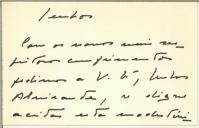 Senhor
Com os nossos mais res-
peitosos cumprimentos
pedimos a V. Exª, Senhor
Almirante, se digne
aceitar esta modesta